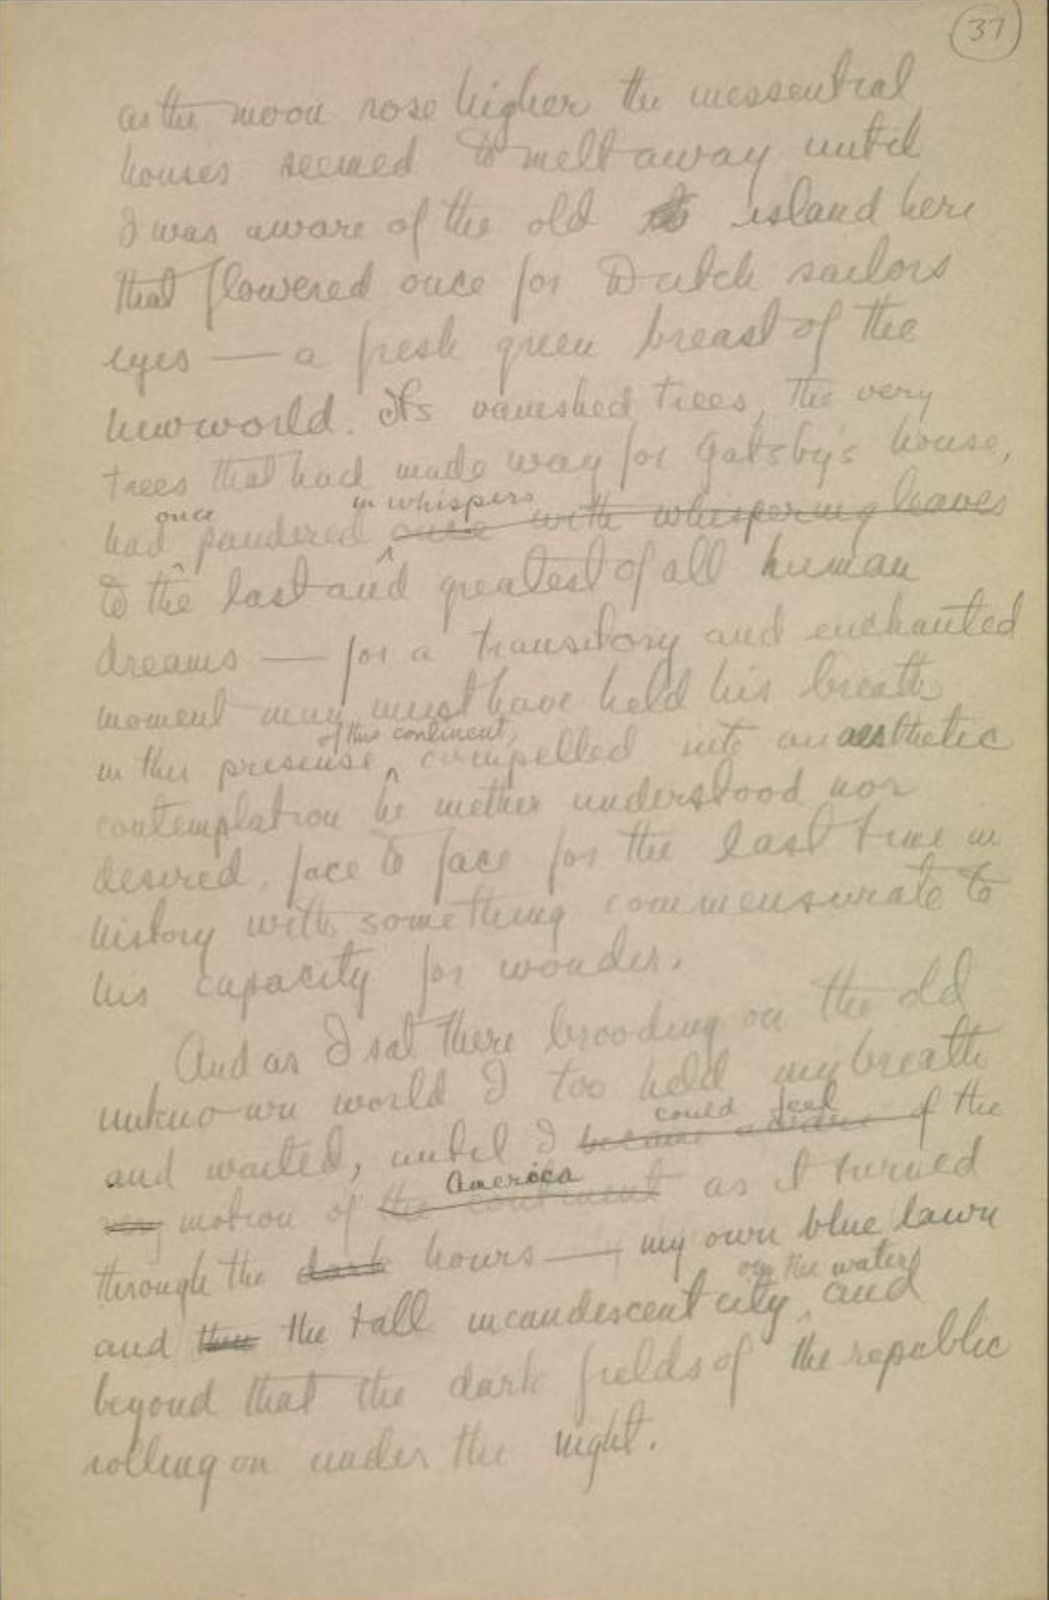 37
as the moon rose higher the inessential
houses seemed to melt away until
I was aware of the old island here
that flowered once for Dutch sailors
eyes — a fresh green breast of the
new world. Its vanished trees, the very
trees that had made way for Gatsby's house,
once in whispers
had pandered once with whispering leaves
to the last and greatest of all human
dreams — for a transitory and enchanted
moment man must have held his breath
of this continent,
in the presense compelled into an aesthetic
contemplation he neither understood nor
desired, face to face for the last time in
history with something commensurate to
his capacity for wonder.
And as I sat there brooding on the old
unknown world I too held my breath
could feel
and waited, until I became aware of the
America
very motion of the continent as it turned
through the dark hours — my own blue lawn
on the water
and the tall incandescent city, and
beyond that the dark fields of the republic
rolling on under the night.